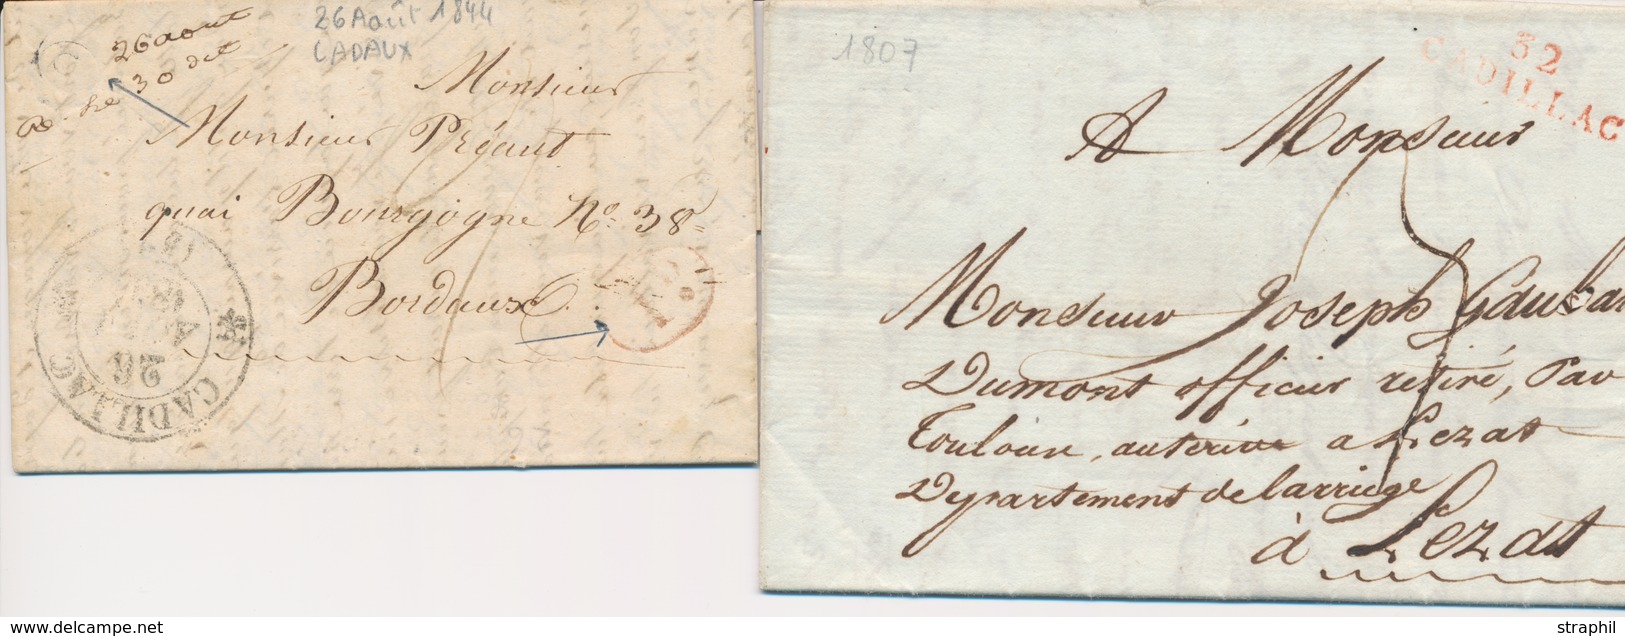 26 aout
Re. le 30 dit
26 Août 1844
CADAUX
Monsieur
Monsieur Prégaut
quai Bourgogne No. 38
Bordeaux
CADILLAC
26
1807
32
CADILLAC
A Monsieur
Monsieur Joseph
Dumont officier retiré, Par
Toulouse, auterive a Lezat
Departement de larriege
à Lezat
www.delcampe.net
straphil